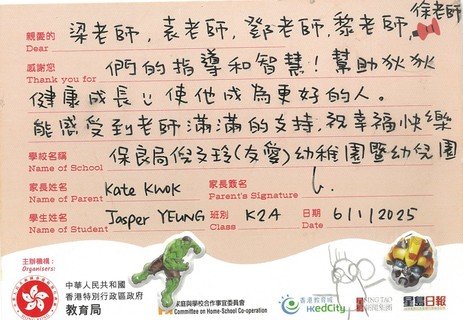 徐老師
親愛的 梁老師, 袁老師, 鄧老師, 黎老師,
Dear
感謝您 們的指導和智慧! 幫助狄狄
Thank you for
健康成長 使他成為更好的人。
能感受到老師滿滿的支持, 祝幸福快樂
學校名稱 保良局倪文玲(友愛)幼稚園暨幼兒園
Name of School
家長姓名 Kate Kwok 家長簽名
Name of Parent Parent's Signature
學生姓名 Jasper YEUNG 班別 K2A 日期 6/1/2025
Name of Student Class Date
主辦機構:
Organisers:
中華人民共和國
香港特別行政區政府
教育局
家庭與學校合作事宜委員會
Committee on Home-School Co-operation
香港教育城
HKedCity
SING TAO
星島日報